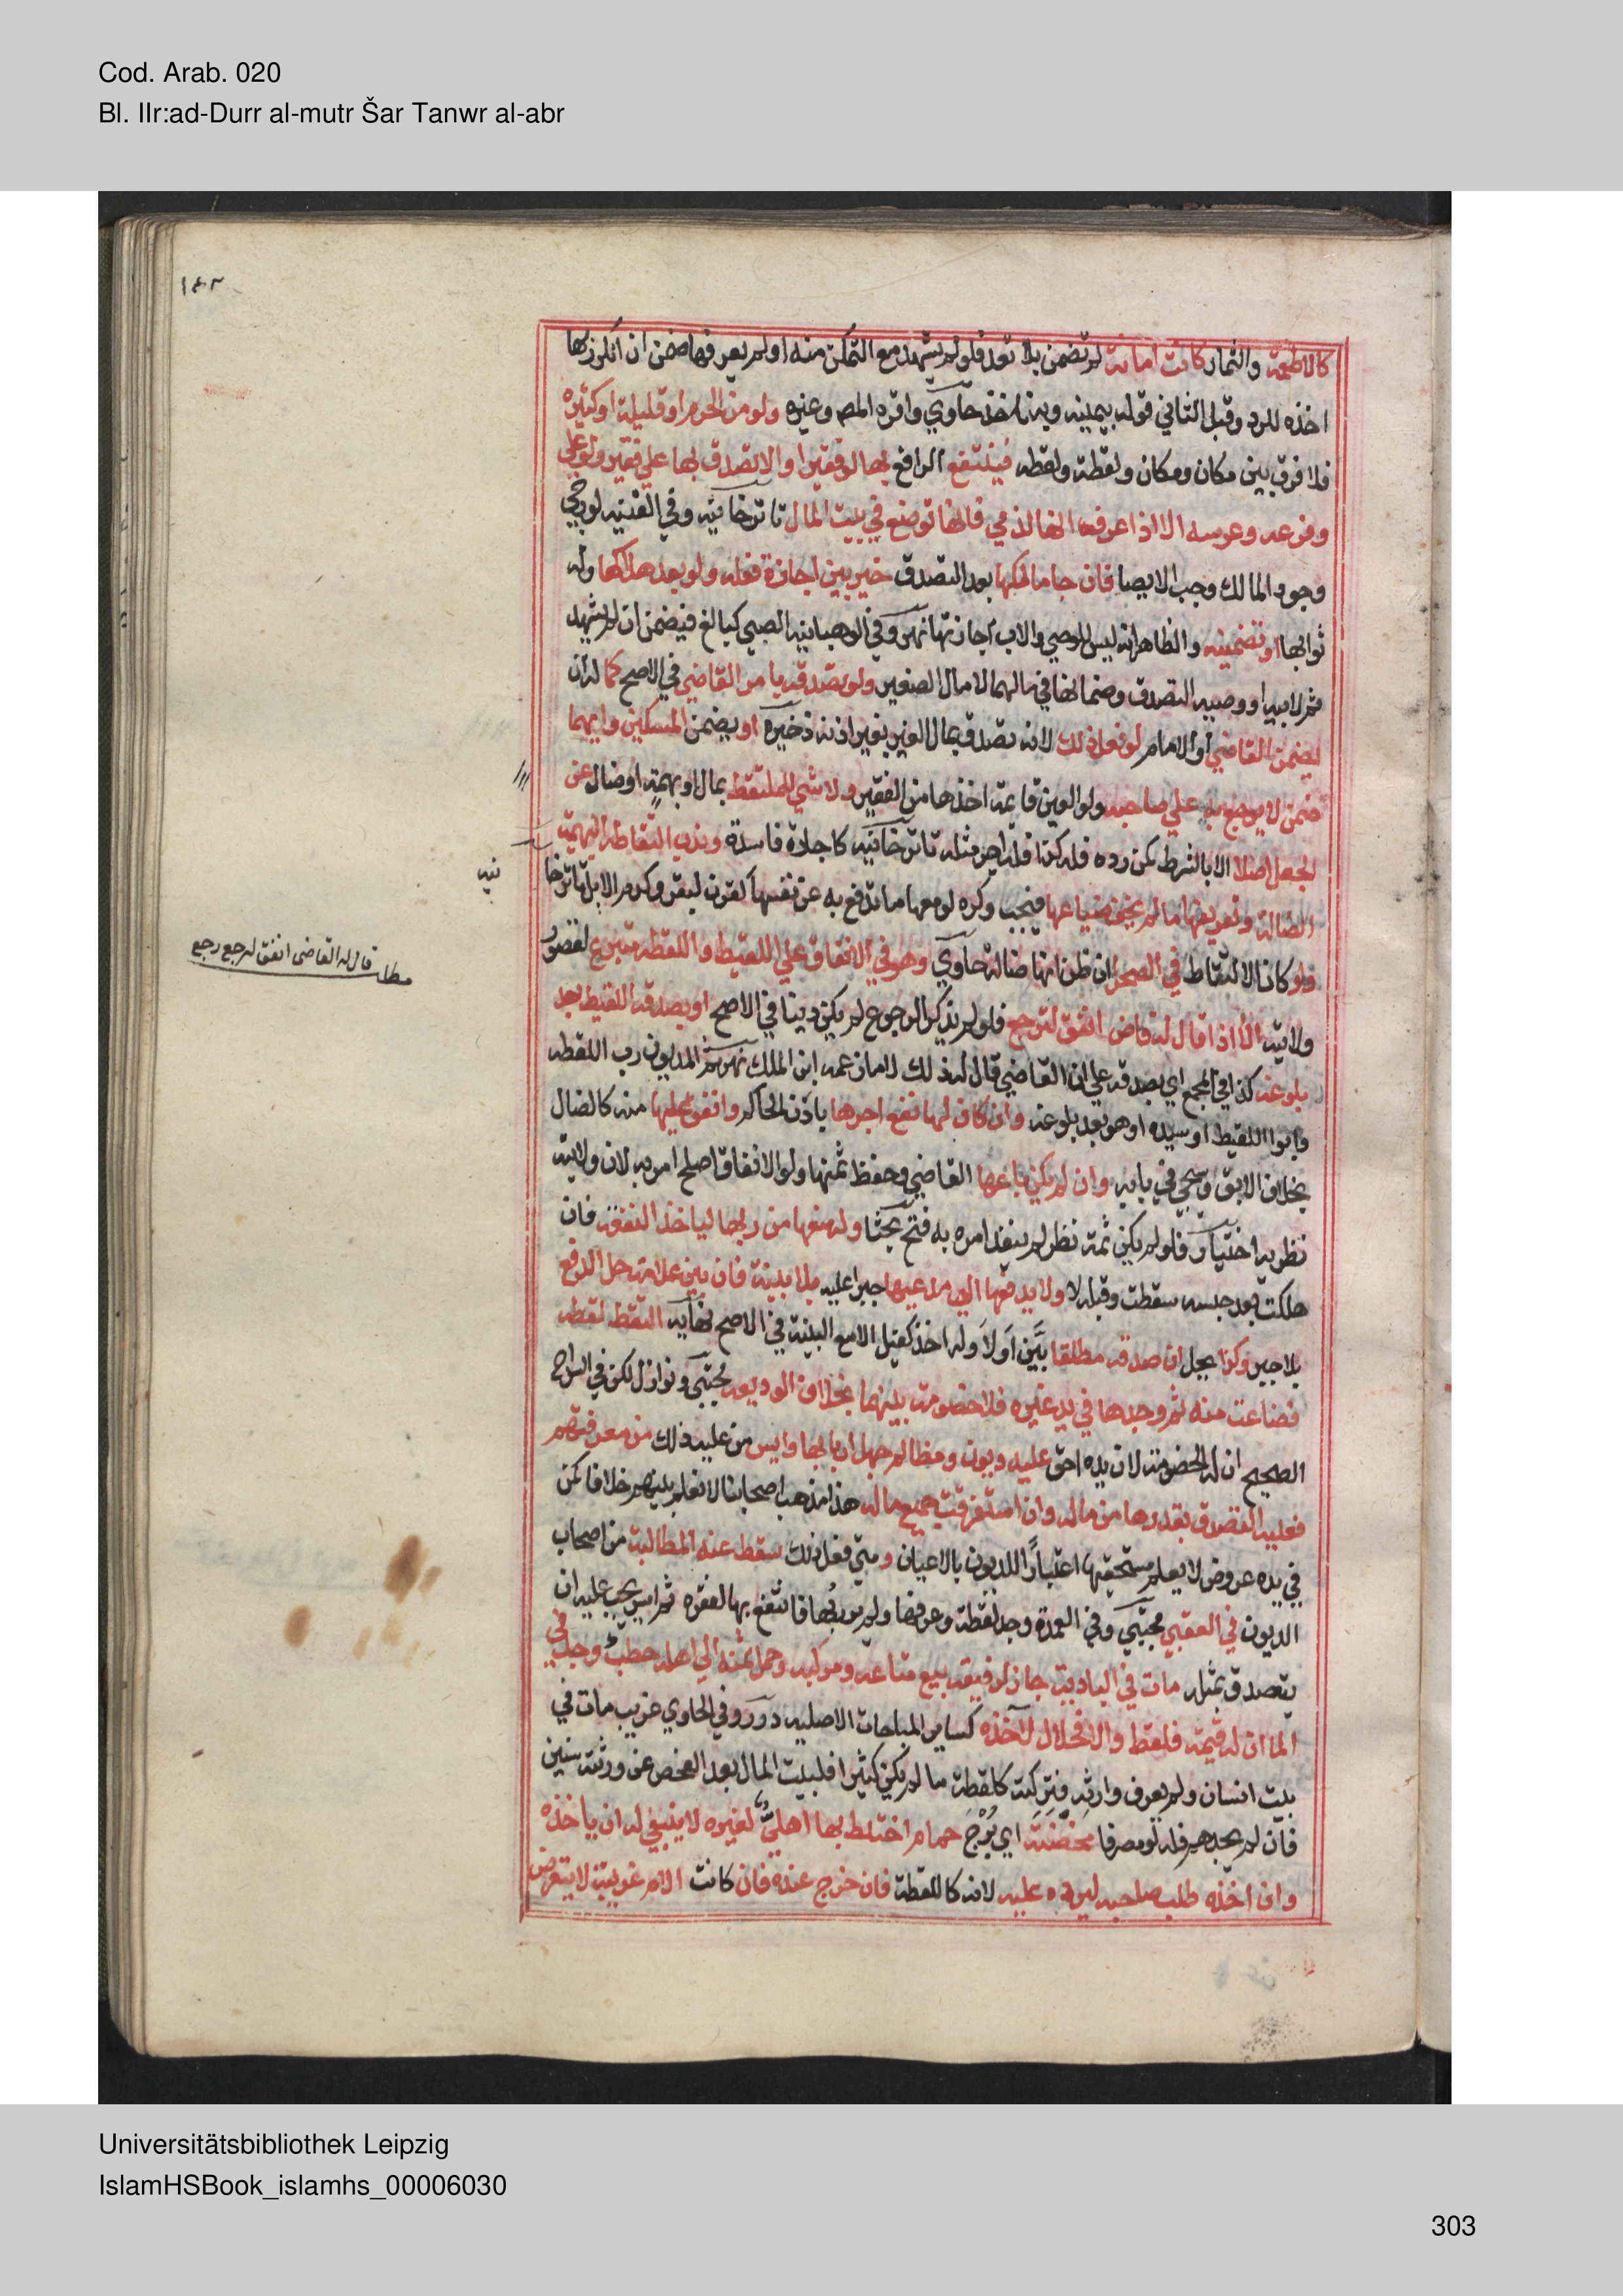 Cod. Arab. 020
Bl. IIr:ad-Durr al-mutr Šar Tanwr al-abr
١٤٢
كالاطعمة والثمار كانت امانة لم تضمن بلا تعد فلو لم يشهد مع التمكن منه او لم يعرفها ضمن ان انكر ربها
اخذه للرد وقبل الثاني قوله بيمينه وبه ناخذ حاوي واقره المص وغيره ولو من الحرم او قليلة او كثيرة
فلا فرق بين مكان ومكان ولقطة ولقطه فينتفع الرافع بها لو فقيرا والا تصدق بها علي فقير ولو علي
وفرعه وعرسه الا اذا عرف انها لذمي فانها توضع في بيت المال تاترخانيه وفي القنيه لو رجي
وجود المالك وجب الايصا فان جا مالكها بعد التصدق خير بين اجازة فعله ولو بعد هلاكها وله
ثوابها او تضمينه والظاهر انه ليس للوصي والاب اجازتها نهر وفي الوهبانيه الصبي كبالغ فيضمن ان لم يشهد
ثم لابيه او وصيه التصدق وضمانها في مالهما لا مال الصغير ولو تصدق بامر القاضي في الاصح كما له ان
يضمن القاضي او الامام لو فعل ذلك لانه تصدق بمال الغير بغير اذنه ذخيرة او يضمن المسكين وايهما
ضمن لا يرجع به علي صاحبه ولو العين قايمة اخذها من الفقير ولا شي للملتقط بمال او بهمة او ضال عن
لجعل اصلا الا بالشرط كمن رده فله كذا فله اجر مثله تاترخانيه كاجارة فاسدة وندب التقاط البهيمة
الضالة وتعريفها ما لم يخف ضياعها فيجب وكره لو معها ما تدفع به عن نفسها كقرن لبقر وكدم لابل تاترخا
نيه
فلو كان الالتقاط في الصحرا ان ظن انها ضالة حاوي وهو في الانفاق علي اللقيط واللقطه متبرع لقصور
مطلب قال له القاضى انفق لترجع رجع
ولايته الا اذا قال له قاض انفق لترجع فلو لم يذكر الرجوع لم يكن دينا في الاصح او يصدقه اللقيط بعد
بلوغه كذا في المجمع اي يصدقه علي ان القاضي قال له ذلك لا ما زعمه ابن الملك نهر ثم المديون رب اللقطه
وابوا اللقيط او سيده او هو بعد بلوغه وان كان لها نفع اجرها باذن الحاكم وانفق عليها منه كالضال
بخلاف الابق وسيجي في بابه وان لم يكن باعها القاضي وحفظ ثمنها ولو الانفاق اصلح امر به لان ولايته
نظريه اختيار فلو لم يكن ثمة نظر لم ينفذ امره به فتح بحثا وله منعها من ربها لياخذ النفقه فان
هلكت بعد حبسه سقطت وقبله لا ولا يدفعها الي مدعيها جبرا عليه بلا بينة فان بين علامة حل الدفع
بلا جبر وكذا يحل ان صدقه مطلقا بين اولا وله اخذ كفيل الا مع البينة في الاصح نهايه التقط لقطه
فضاعت منه ثم وجدها في يد غيره فلا خصومة بينهما بخلاف الوديعه مجتبي ونوازل لكن في السراج
الصحيح ان له الخصومة لان يده احق عليه ديون ومظالم جهل اربابها وايس من عليه ذلك من معرفتهم
فعليه التصدق بقدرها من ماله وان استغرقت جميع ماله هذا مذهب اصحابنا لا نعلم بينهم خلافا كمن
في يده عروض لا يعلم مستحقيها اعتبارا للديون بالاعيان ومتي فعل ذلك سقط عنه المطالبة من اصحاب
الديون في العقبي مجتبي وفي العمدة وجد لقطة وعرفها ولم ير ربها فانتفع بها لفقره ثم ايسر يجب عليه ان
يتصدق بمثله مات في البادية جاز لرفيقه بيع متاعه ومركبه وحمل ثمنه الي اهله حطب وجد في
الما ان له قيمة فلقط والا فحلال لاخذه كساير المباحات الاصليه درر وفي الحاوي غريب مات في
بيت انسان ولم يعرف وارثه فتركته كلقطة ما لم يكن كثيرا فلبيت المال بعد الفحص عن ورثته سنين
فان لم يجدهم فله لو مصرفا محضنة اي برج حمام اختلط بها اهلي لغيره لا ينبغي له ان ياخذه
وان اخذه طلب صاحبه ليرده عليه لانه كاللقطة فان فرخ عنده فان كانت الام غريبة لا يتعرض
Universitätsbibliothek Leipzig
IslamHSBook_islamhs_00006030
303